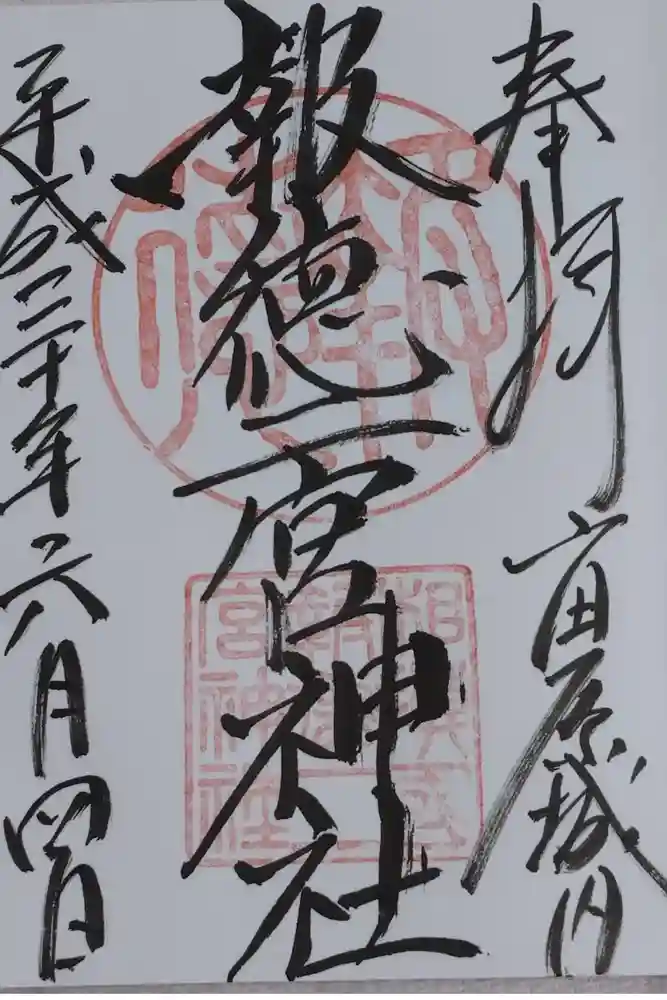 奉拝 小田原城内
報徳二宮神社
平成三十年六月四日
宮神社